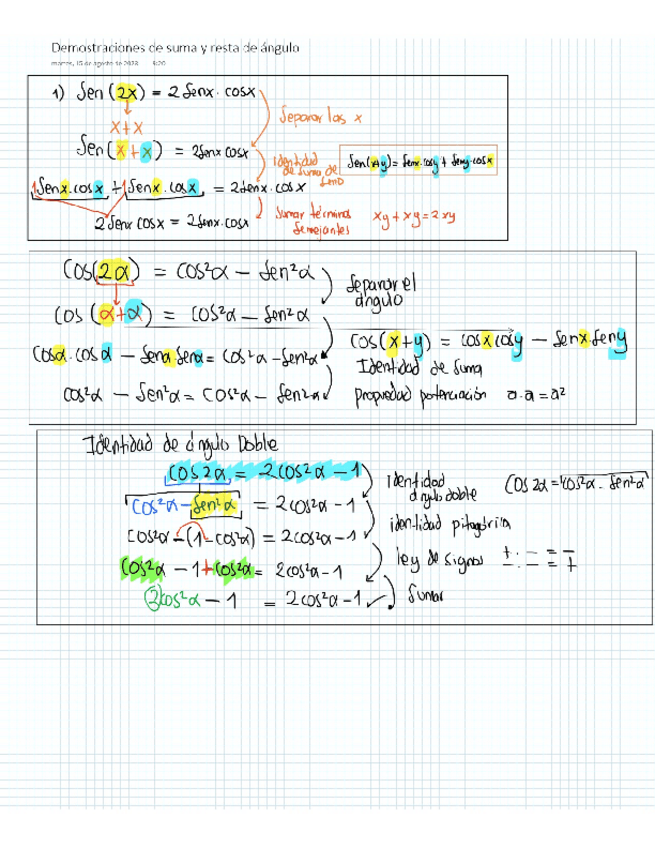 Demostraciones de suma y resta de ángulo
martes, 15 de agosto de 2023 8:20
1) Sen (2x) = 2 Senx . cosx
Separar las x
x+x
Sen (x + x) = 2Senx cosx
Identidad de suma de seno
Sen(x+y) = Senx.cosy + Seny.cosx
1Senx.cosx + 1Senx.cosx = 2Senx.cosx
2 Senx cosx = 2 Senx.cosx
Sumar términos semejantes
xy + xy = 2xy
Cos(2α) = cos²α − Sen²α
Separar el ángulo
Cos (α+α) = cos²α − Sen²α
Cos(x+y) = cosx cosy − Senx.Seny
Cosα.cosα − Senα.Senα = cos²α − Sen²α
Identidad de Suma
cos²α − Sen²α = cos²α − Sen²α
propiedad potenciación a.a = a²
Identidad de ángulo Doble
Cos2α = 2cos²α − 1
identidad ángulo doble
Cos 2α = cos²α − Sen²α
Cos²α − Sen²α = 2cos²α − 1
identidad pitagórica
cos²α − (1 − cos²α) = 2cos²α − 1
ley de signos
+ . − = −
− . − = +
Cos²α − 1 + cos²α = 2cos²α − 1
2cos²α − 1 = 2cos²α − 1 ✓
Sumar